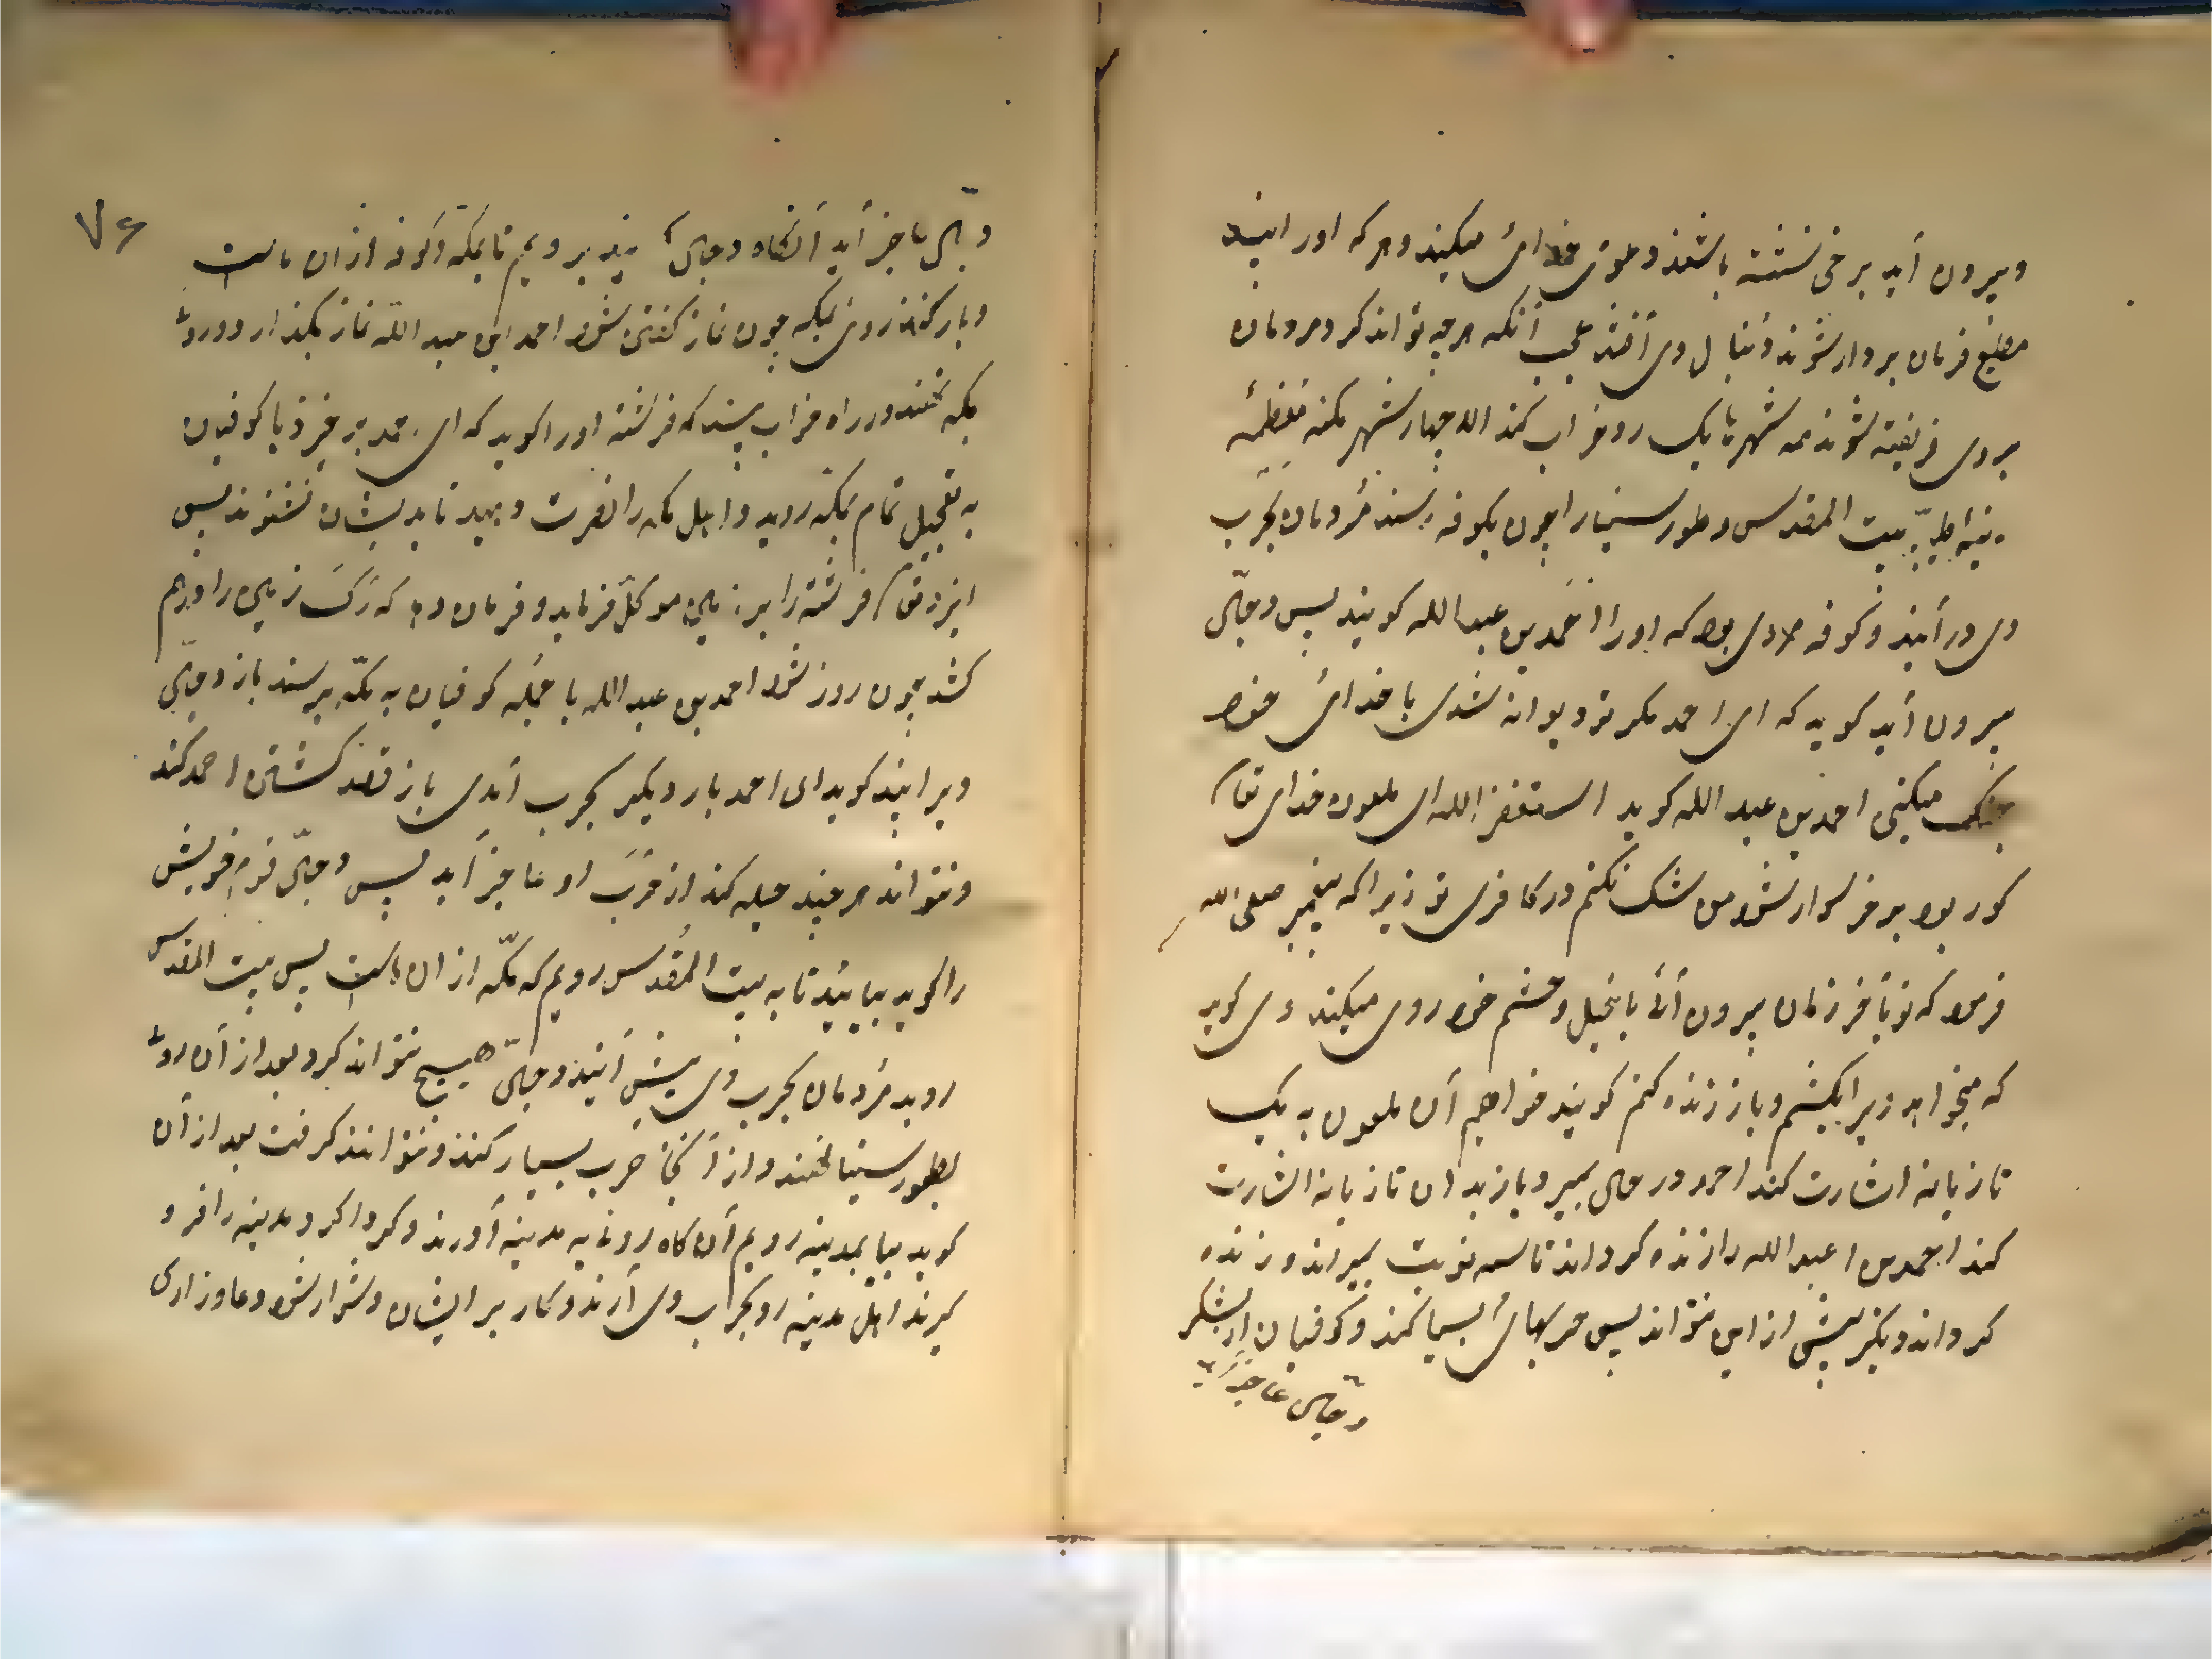 وبیرون آید بر خری نشسته باشد و دعوی خدائی میکند و هر که او را بیند
مطیع فرمان بردار شوند و دنبال وی افتند عجب آنکه هر چه تواند کرد مردمان
بر وی فریفته شوند همه شهرها یک رو خراب کند الا چهار شهر مکه معظمه
مدینه طیبه بیت المقدس و طور سینا را چون بکوفه رسند مردمان بحرب
وی در آیند و کوفه مردی بود که او را احمد بن عبدالله کویند پس دجال
بیرون آید کوید که ای احمد مکر تو دیوانه شدی با خدای خود
جنک میکنی احمد بن عبد الله کوید استغفر الله ای ملعون خدای تعالی
کور بود بر خر سوار شود من شک نکنم در کافری تو زیرا که پیغمبر صلی الله
فرمود که تو بآخر زمان بیرون آئی با خیل و حشم خود روی میکند وی کوید
که میخواهید ویرا بکشم و باز زنده کنم کویند خواهیم آن ملعون به یک
تازیانه اشارت کند احمد در حال بمیرد باز بدان تازیانه اشارت
کند احمد بن عبد الله را زنده کرداند تا سه نوبت بمیراند و زنده
کرداند دیکر بیش از این نتواند پس حربهای بسیار کند و کوفیان از لشکر
دجال عاجز آید
۷۶
دجال عاجز آید آنکاه دجال کوید برویم تا بمکه که کوفه از ان ماست
و بار کند روی بمکه چون نماز خفتن شود احمد ابن عبد الله نماز بکذارد و روی
بمکه نهند در راه خواب بیند که فرشته او را کوید که ای احمد بر خیز و با کوفیان
به تعجیل تمام بمکه روید و اهل مکه را نصرت دهید تا بدیشان نشوند پس
ایزد تعالی فرشته را بر زمین موکل فرماید و فرمان دهد که رک زمین را در هم
کشد چون روز شود احمد بن عبد الله با جمله کوفیان به مکه برسند باز دجال
ویرا بیند کوید ای احمد بار دیکر بحرب آمدی باز قصد کشتن احمد کند
و نتواند هر چند حیله کند از حرب او عاجز آید پس دجال قوم خویش
را کوید بیائید تا به بیت المقدس رویم که مکه از ان ماست پس بیت المقدس
روید مردمان بحرب وی پیش آیند و دجال هیچ نتواند کرد بعد از آن روی
بطور سینا نهند و از آنجا حرب بسیار کنند و نتوانند کرفت بعد از آن
کوید بیا بمدینه رویم آن کاه روی به مدینه آورند و کرد اکرد مدینه را فرو
کیرند اهل مدینه رو بحرب وی آرند و کار بر ایشان دشوار شود دعا و زاری